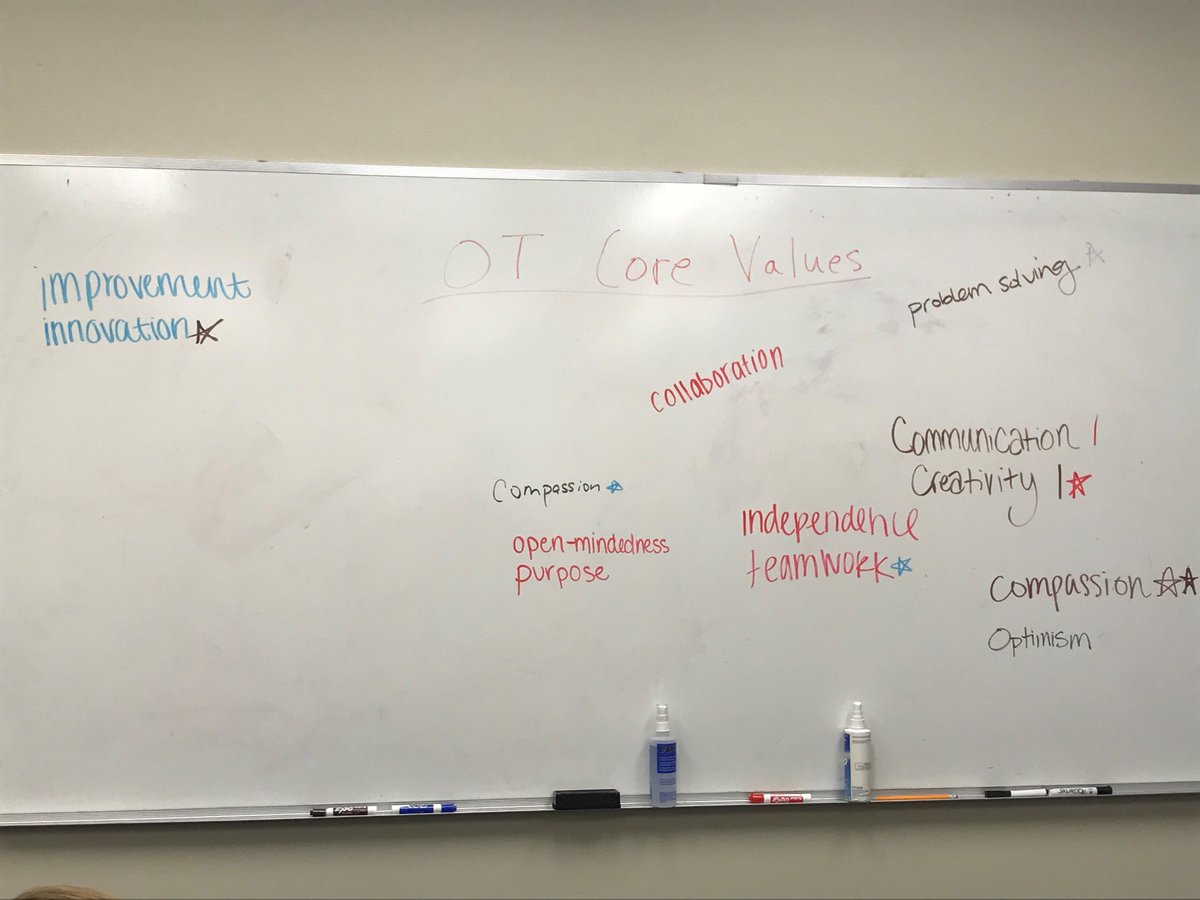 OT Core Values
improvement
innovation☆
problem solving☆
collaboration
Communication |
Creativity |☆
Compassion☆
open-mindedness
purpose
independence
teamwork☆
compassion☆☆
Optimism
EXPO
EXPO